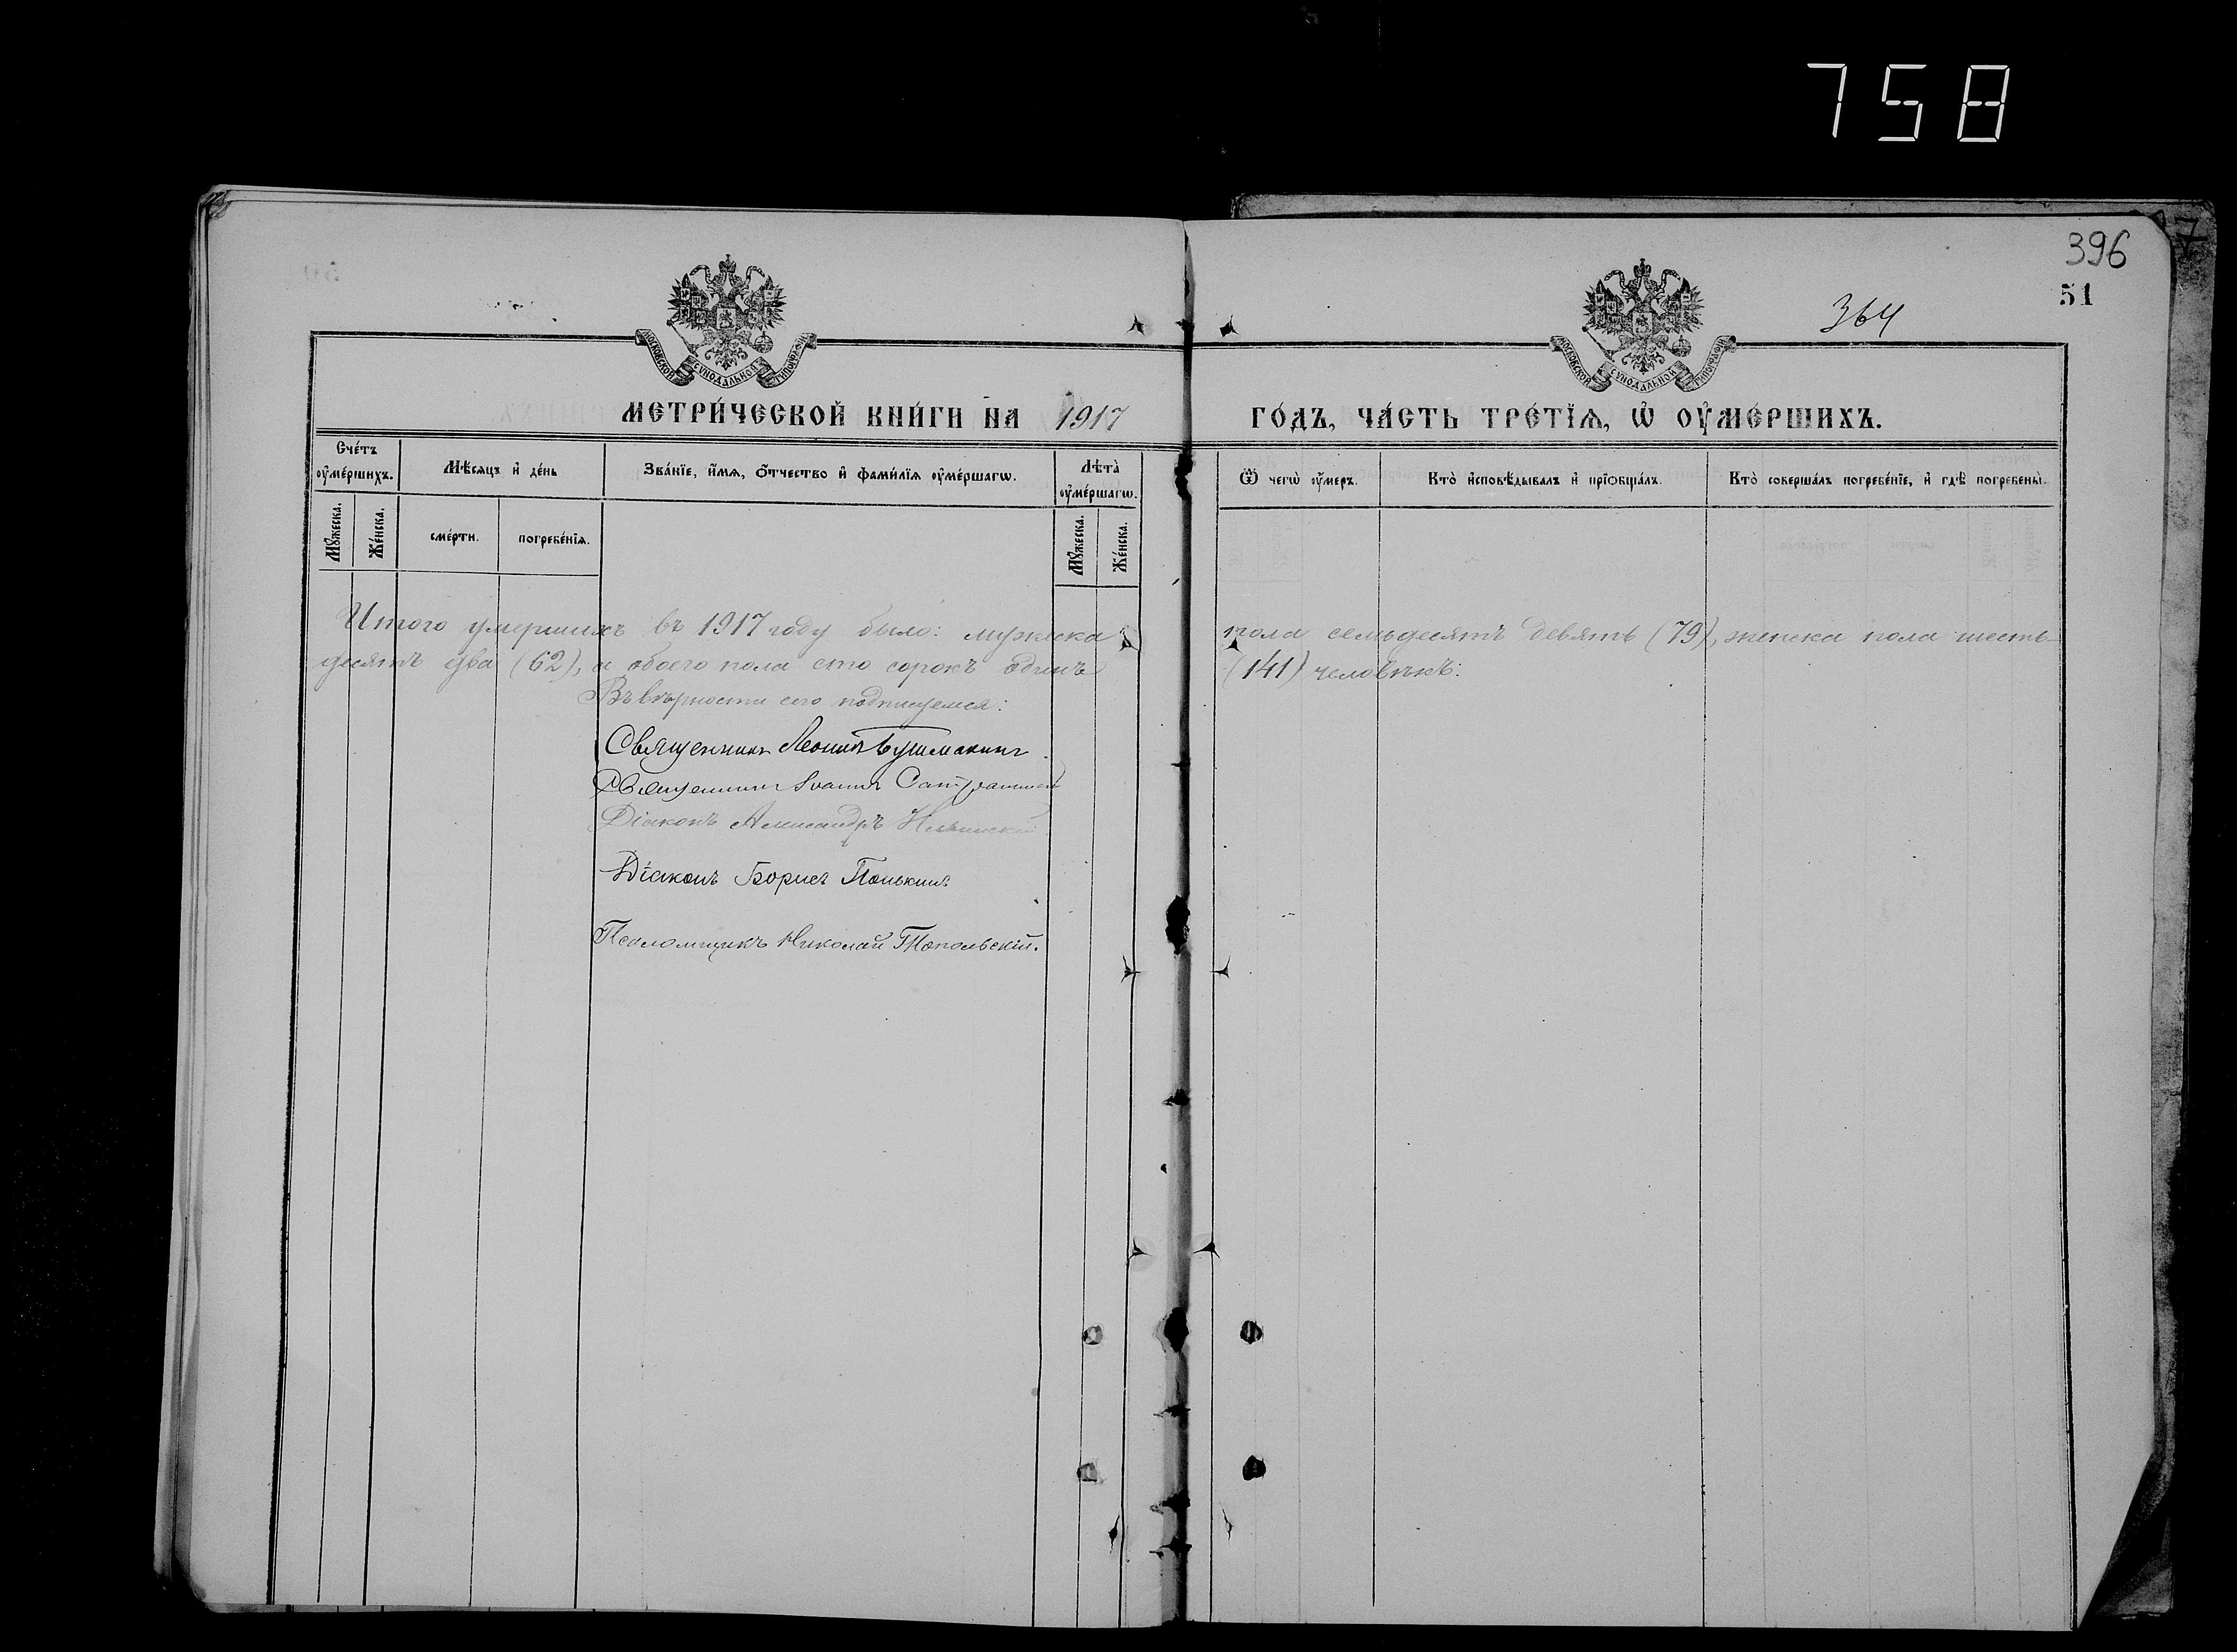 758
396
51
364
МОСКОВСКОЙ СѴНОДАЛЬНОЙ ТИПОГРАФІИ
МОСКОВСКОЙ СѴНОДАЛЬНОЙ ТИПОГРАФІИ
МЕТРИ́ЧЕСКОЙ КНИ́ГИ НА 1917 ГО́ДЪ, ЧА́СТЬ ТРЕ́ТЇѦ, Ѡ҆ ОУ҆МЕ́РШИХЪ.
Сче́тъ оу҆ме́ршихъ.
Мѣ́сяцъ и҆ де́нь
Зва́нїе, и҆́мя, ѻ҆́тчество и҆ фами́лїя оу҆ме́ршагѡ.
Лѣта̀ оу҆ме́ршагѡ.
Ѿ чегѡ̀ оу҆́меръ.
Кто̀ и҆сповѣ́дывалъ и҆ прїѡбща́лъ.
Кто̀ соверша́лъ погребе́нїе, и҆ гдѣ̀ погребены̀.
Мꙋ́жеска.
Же́нска.
сме́рти.
погребе́нїя.
Мꙋ́жеска.
Же́нска.
Итого умершихъ въ 1917 году было: мужеска пола семьдесятъ девять (79), женска пола шесть-
десятъ два (62), а обоего пола сто сорокъ одинъ (141) человѣкъ:
Въ вѣрности сего подписуемся:
Священникъ Леонидъ Бушмакинъ
Священникъ Іоаннъ
Діаконъ Александръ Ильинскій
Діаконъ Борисъ Понькинъ
Псаломщикъ Николай Топольскій.